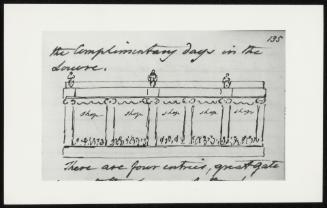 135
the Complimentary days in the
Louvre.
shop shop shop shop shop
There are four entries, great gate